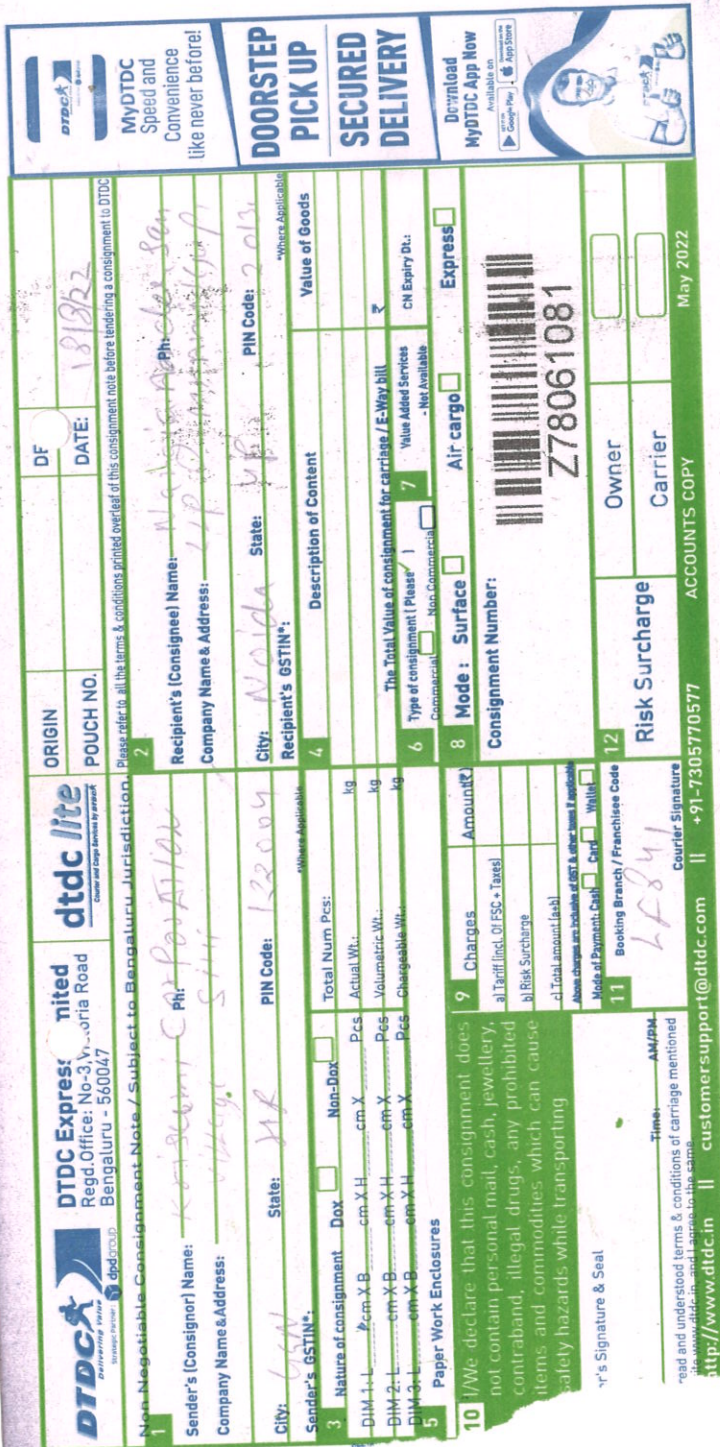 DTDC
Delivering Value
Strategic Partner: dpdgroup
DTDC Express mited
Regd.Office: No-3, Victoria Road
Bengaluru - 560047
dtdc lite
Courier and Cargo Services by DTDC
ORIGIN
POUCH NO.
DATE: 18/8/22
Non Negotiable Consignment Note / Subject to Bengaluru Jurisdiction.
Please refer to all the terms & conditions printed overleaf of this consignment note before tendering a consignment to DTDC
1
Sender's (Consignor) Name: Corporation Ph:
Company Name&Address: Village
City: GGN State: HR PIN Code: 122004
Sender's GSTIN*: *Where Applicable
2
Recipient's (Consignee) Name: Ph:
Company Name & Address:
City: Noida State: UP PIN Code: 2013
Recipient's GSTIN*: *Where Applicable
3 Nature of consignment Dox Non-Dox
Total Num Pcs:
DIM 1: L cm X B cm X H cm X Pcs Actual Wt.: kg
DIM 2: L cm X B cm X H cm X Pcs Volumetric Wt.: kg
DIM 3: L cm X B cm X H cm X Pcs Chargeable Wt.: kg
4 Description of Content Value of Goods
The Total Value of consignment for carriage / E-Way bill ₹
5 Paper Work Enclosures
6 Type of consignment ( Please ✓ )
Commercial Non Commercial
7 Value Added Services
- Not Available
CN Expiry Dt.:
8 Mode : Surface Air cargo Express
Consignment Number:
Z78061081
9 Charges Amount(₹)
a) Tariff (incl. Of FSC + Taxes)
b) Risk Surcharge
c) Total amount (a+b)
Above charges are inclusive of GST & other taxes if applicable
Mode of Payment: Cash Card Wallet
10 I/We declare that this consignment does
not contain personal mail, cash, jewellery,
contraband, illegal drugs, any prohibited
items and commodities which can cause
safety hazards while transporting
r's Signature & Seal
Time: AM/PM
read and understood terms & conditions of carriage mentioned
site www.dtdc.in, and I agree to the same
11 Booking Branch / Franchisee Code
Courier Signature
12 Risk Surcharge
Owner
Carrier
http://www.dtdc.in || customersupport@dtdc.com || +91-7305770577 ACCOUNTS COPY May 2022
DTDC
MyDTDC
Speed and
Convenience
like never before!
DOORSTEP
PICK UP
SECURED
DELIVERY
Download
MyDTDC App Now
Available on
Google Play
App Store
DTDC